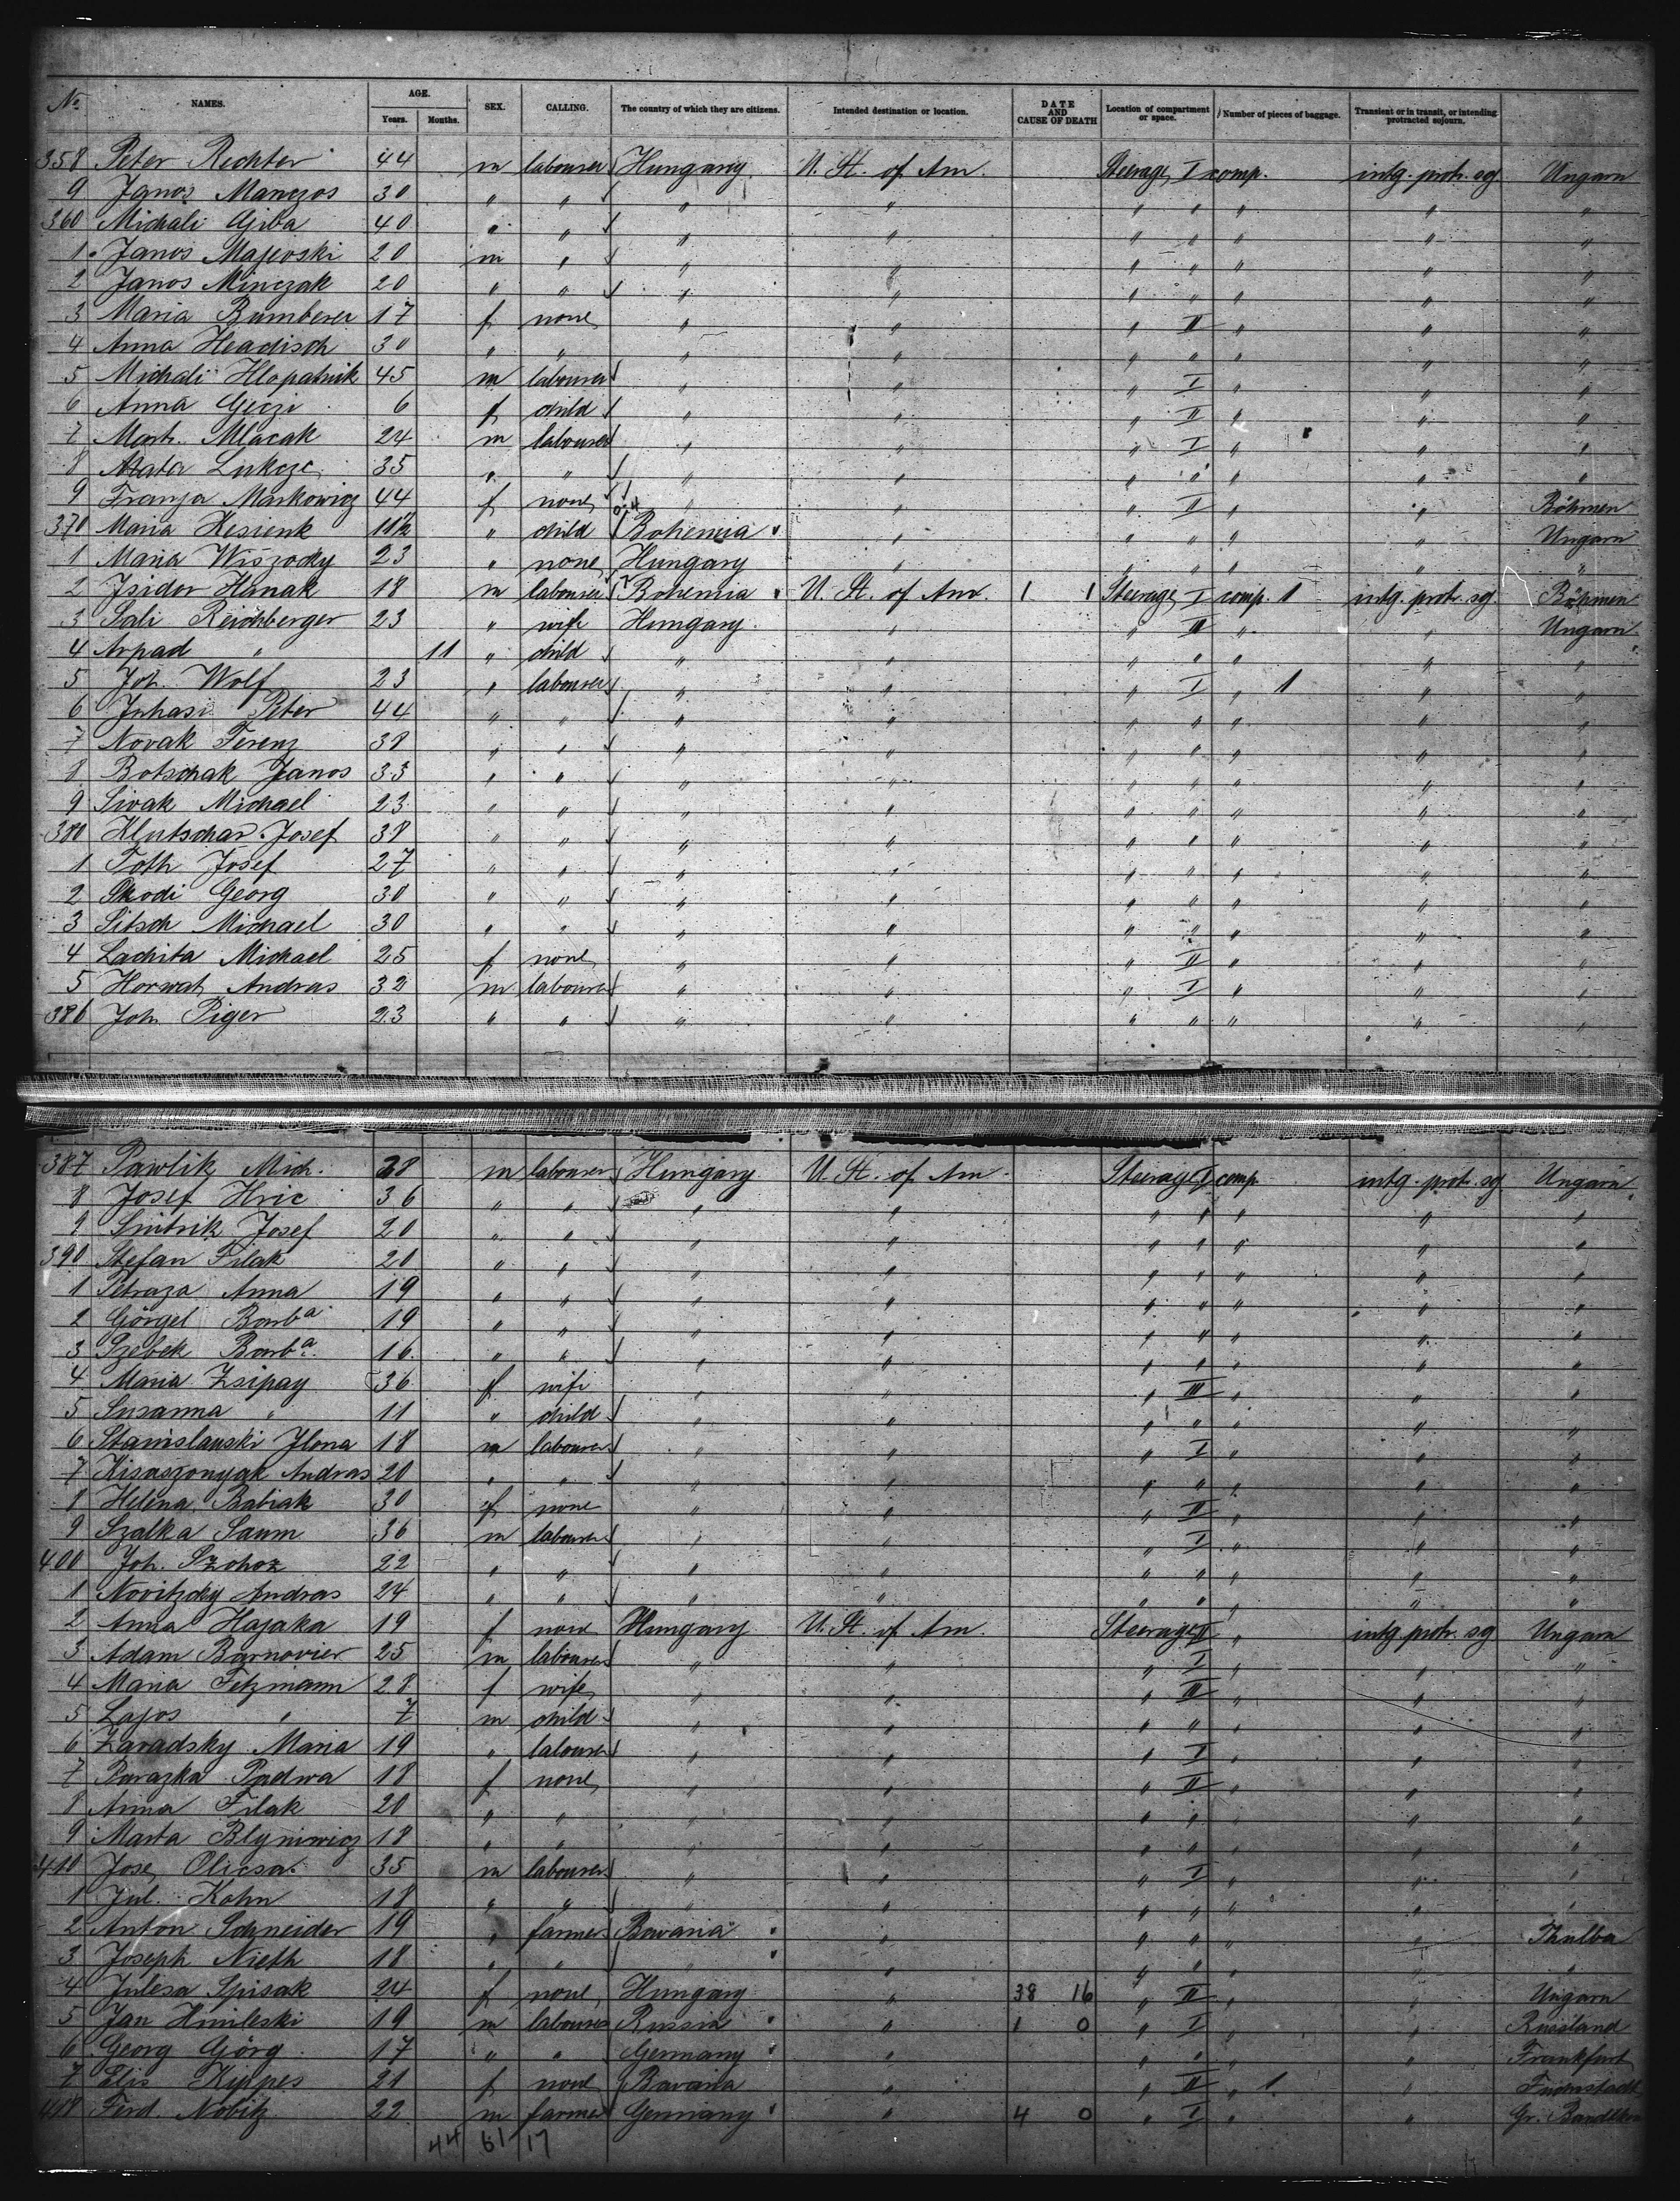 No. NAMES. AGE. Years. Months. SEX. CALLING. The country of which they are citizens. Intended destination or location. DATE AND CAUSE OF DEATH Location of compartment or space. Number of pieces of baggage. Transient or in transit, or intending protracted sojourn.
358 Peter Rechter 44 m labourer Hungary U. St. of Am. Steerage I comp. intg. protr. sg Ungarn
9 Janos Manczos 30 " " " " " " " " "
360 Michali Gjiba 40 " " " " " " " " "
1 Janos Majevski 20 m " " " " " " " "
2 Janos Minczak 20 " " " " " " " " "
3 Maria Bumberer 17 f none " " " II " " "
4 Anna Headisch 30 " " " " " " " " "
5 Michali Hlopatnik 45 m labourer " " " I " " "
6 Anna Geczi 6 f child " " " II " " "
7 Mart. Mlacak 24 m labourer " " " I " " "
8 Mata Lukczc 35 " " " " " " " " "
9 Franja Markowicz 44 f none " " " II " " Böhmen
370 Maria Kesienk 11½ " child Bohemia " " " " " Ungarn
1 Maria Wiszocky 23 " none Hungary " " " " " "
2 Isidor Hanak 18 m labourer Bohemia U. St. of Am. 1 1 Steerage I comp. 1 intg. protr. sg. Böhmen
3 Sali Reichberger 23 " wife Hungary " " III " " Ungarn
4 Arpad " 11 " child " " " " " " "
5 Joh. Wolf 23 " labourer " " " I " 1 " "
6 Juhasi Peter 44 " " " " " " " " "
7 Novak Ferenz 38 " " " " " " " " "
8 Botschak Janos 33 " " " " " " " " "
9 Sivak Michael 23 " " " " " " " " "
380 Klutschar Josef 38 " " " " " " " " "
1 Toth Josef 27 " " " " " " " " "
2 Skodi Georg 30 " " " " " " " " "
3 Sitsch Michael 30 " " " " " " " " "
4 Lachita Michael 25 f none " " " II " " "
5 Horwat Andras 32 m labourer " " " I " " "
386 Joh. Piger 23 " " " " " " " " "
387 Pawlik Mich. 28 m labourer Hungary U. St. of Am. Steerage I comp. intg. protr. sg Ungarn
8 Josef Hric 36 " " " " " " " " "
9 Smitrik Josef 20 " " " " " " " " "
390 Stefan Filak 20 " " " " " " " " "
1 Petraza Anna 19 " " " " " " " " "
2 Görgel Barba 19 " " " " " " " " "
3 Szebek Barba 16 " " " " " " " " "
4 Maria Zsipay 36 f wife " " " III " " "
5 Susanna " 11 " child " " " " " " "
6 Stanislauski Ilona 18 m labourer " " " I " " "
7 Kisaszonyak Andras 20 " " " " " " " " "
8 Helena Babiak 30 f none " " " II " " "
9 Szalka Saum 36 m labourer " " " I " " "
400 Joh. Szohoz 22 " " " " " " " " "
1 Novitzky Andras 24 " " " " " " " " "
2 Anna Hajaka 19 f none Hungary U. St. of Am. Steerage II " intg. protr. sg Ungarn
3 Adam Barnovier 25 m labourer " " " I " " "
4 Maria Fetzmann 28 f wife " " " III " " "
5 Lajos " 7 m child " " " " " " "
6 Zavadsky Maria 19 " labourer " " " I " " "
7 Parazka Padwa 18 f none " " " II " " "
8 Anna Filak 20 " " " " " " " " "
9 Marta Blyniwicz 18 " " " " " " " " "
410 Jose Olicsa 35 m labourer " " " I " " "
1 Jul. Kohn 18 " " " " " " " " "
2 Anton Schneider 19 " farmer Bavaria " " " " " Thulba
3 Joseph Nieth 18 " " " " " " " " "
4 Julesa Spisak 24 f none Hungary " 38 16 " II " " Ungarn
5 Jan Himleski 19 m labourer Russia " 1 0 " I " " Russland
6 Georg Görg 17 " " Germany " " " " " Frankfurt
7 Elis Kippes 21 f none Bavaria " " II " 1 "
418 Ferd. Nobitz 22 m farmer Germany " 4 0 " I " " Gr.
44 61 17